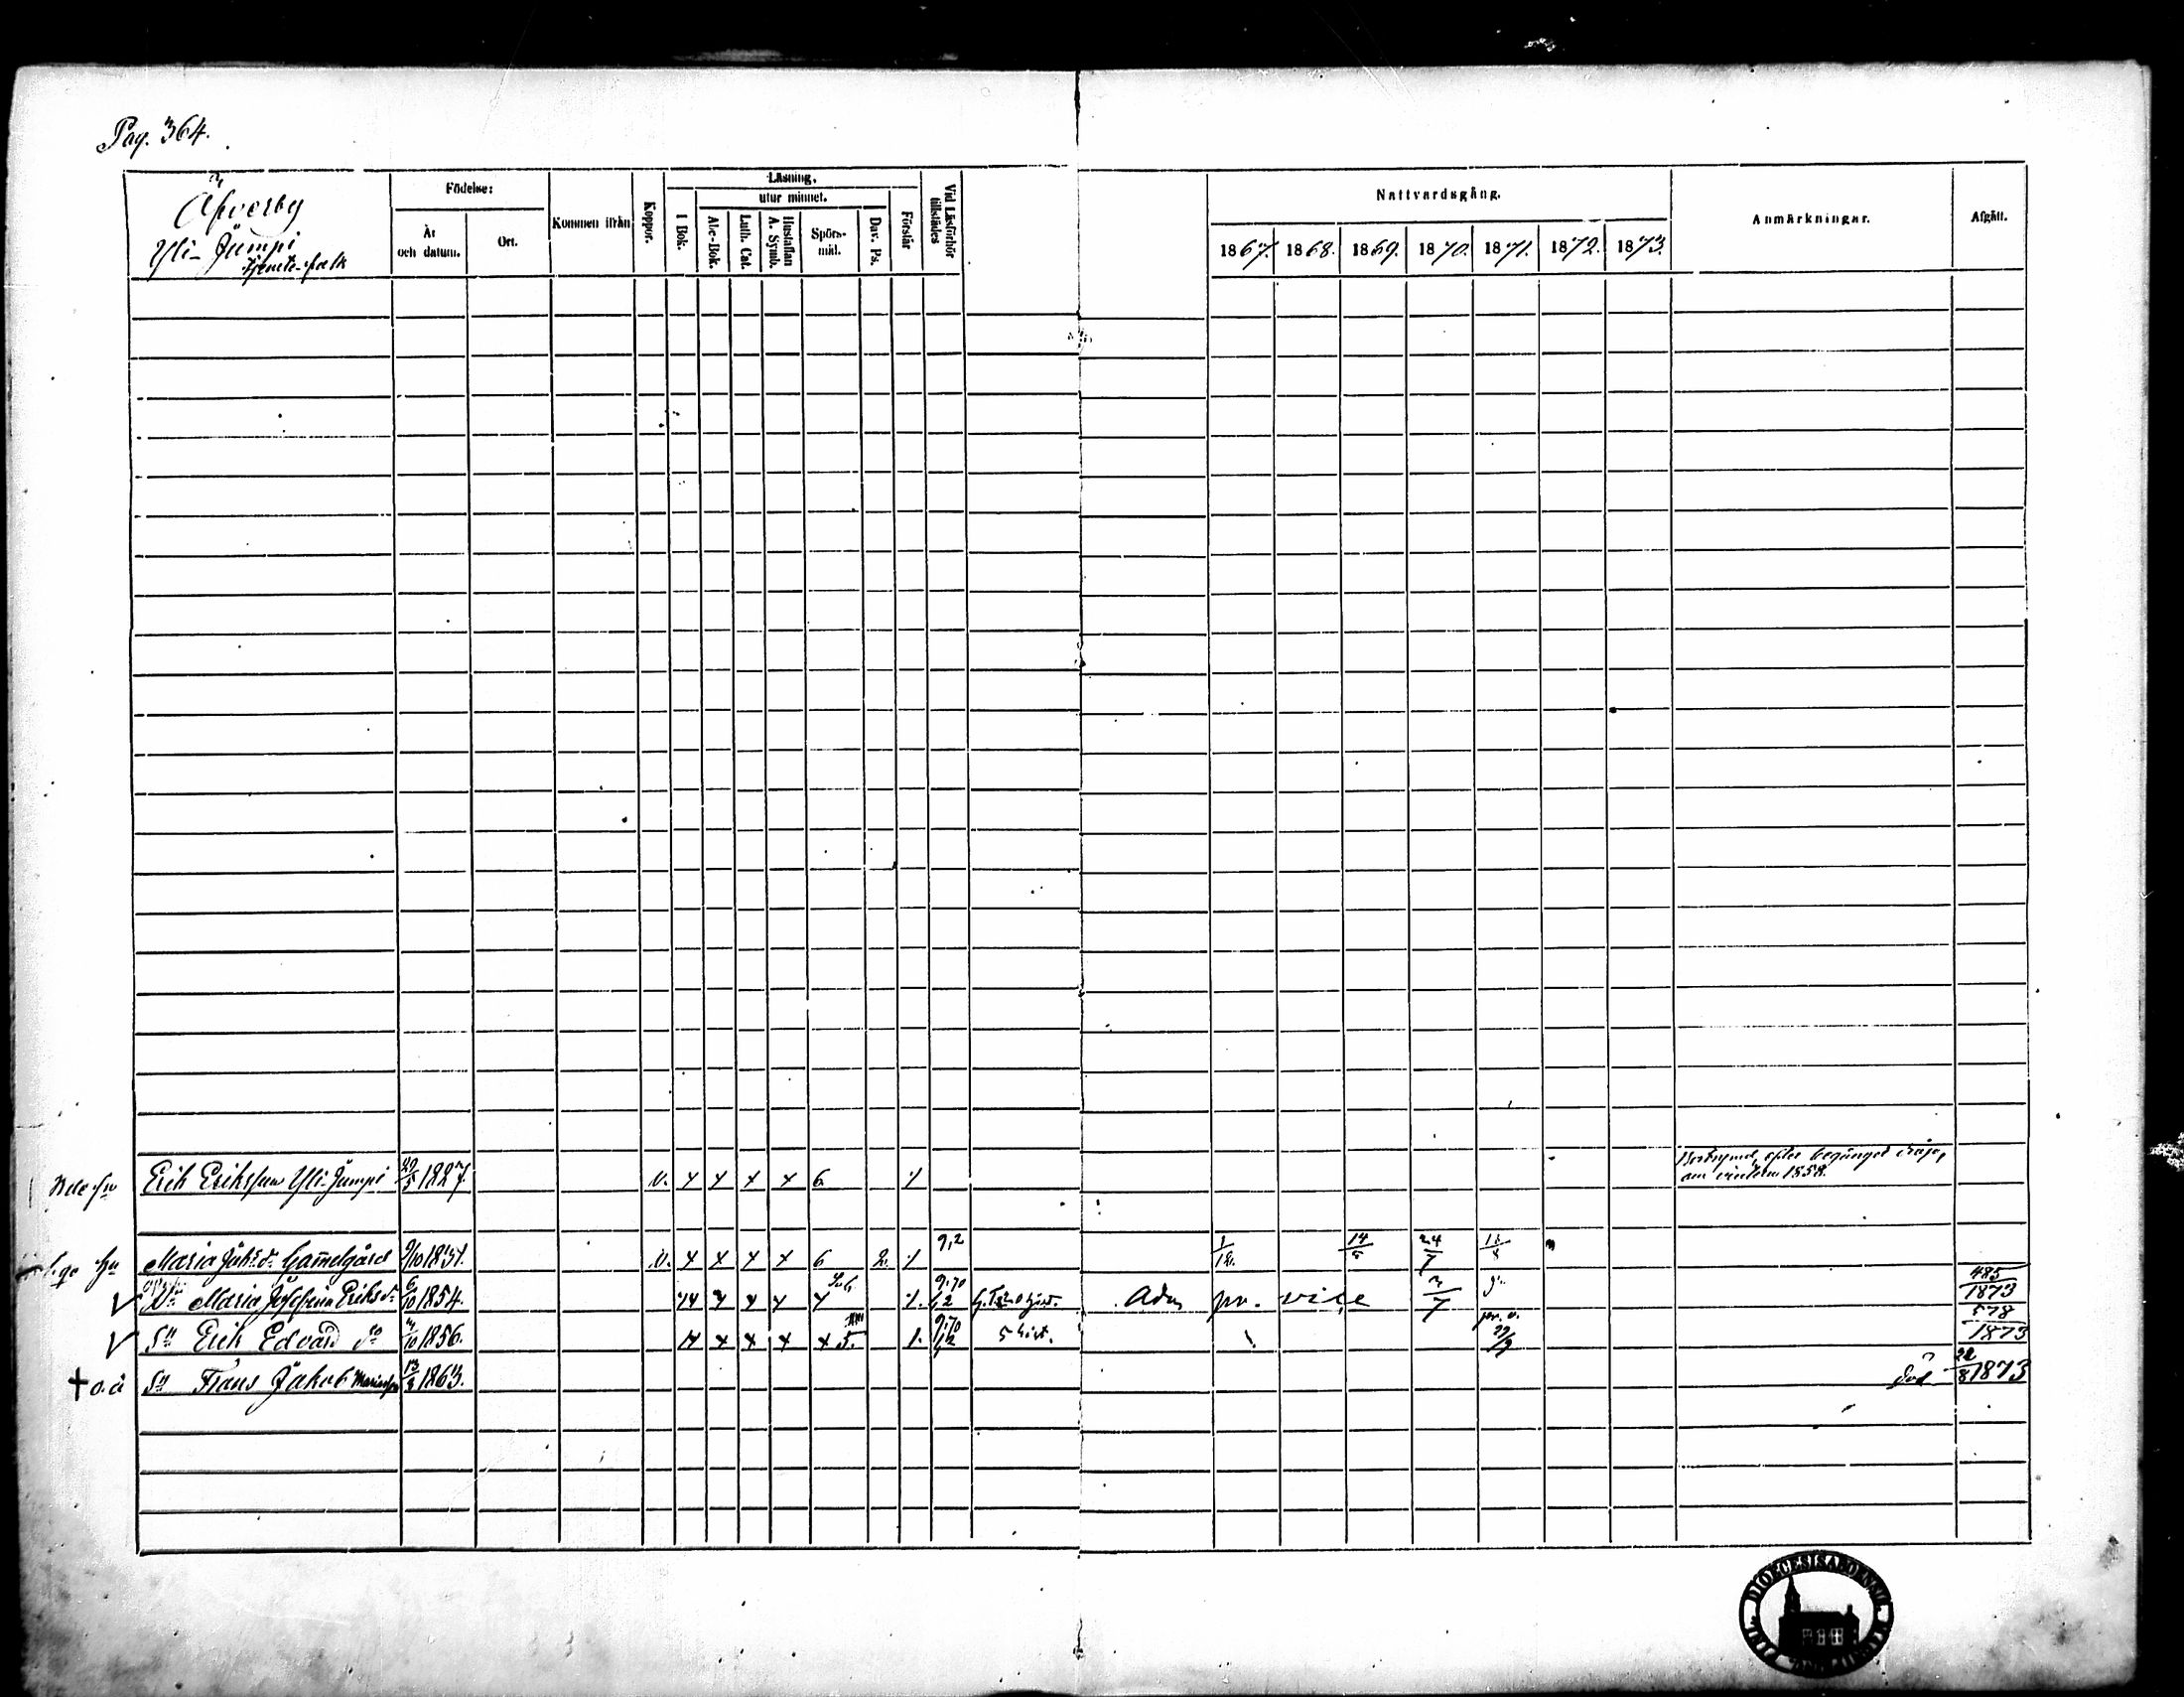 Pag. 364.
Åfverby
Yli-Jumpi
tjenste-folk
Födelse:
År och datum.
Ort.
Kommen ifrån
Koppor.
Läsning.
I Bok.
utur minnet.
Abc-Bok.
Luth. Cat.
Hustaflan A. Symb.
Spörs-mål.
Dav. Ps.
Förstår
Vid Läsförhör tillstädes
Nattvardsgång.
1867. 1868. 1869. 1870. 1871. 1872. 1873.
Anmärkningar.
Afgått.
Erik Eriksson Yli-Jumpi 29/5 1827. v. x x x x 6 /
efter begånget
om vintern 1858.
Maria Joh:dr Gammelgård 9/10 1831. v. x x x x 6 2 / 9,2 1/12. 14 24/7
Dr Maria Josefina Eriksdr 6/10 1854. x x x x /. 9.70 Adm pr. vice 2/7 485/1873
Sn Erik Edvard So 4/10 1856. x x x x 5. /. 9.70 5 hist. pr. v. 578/1873
† o.ä Sn Frans Jakob Mariason 13/3 1863. död 22/8 1873